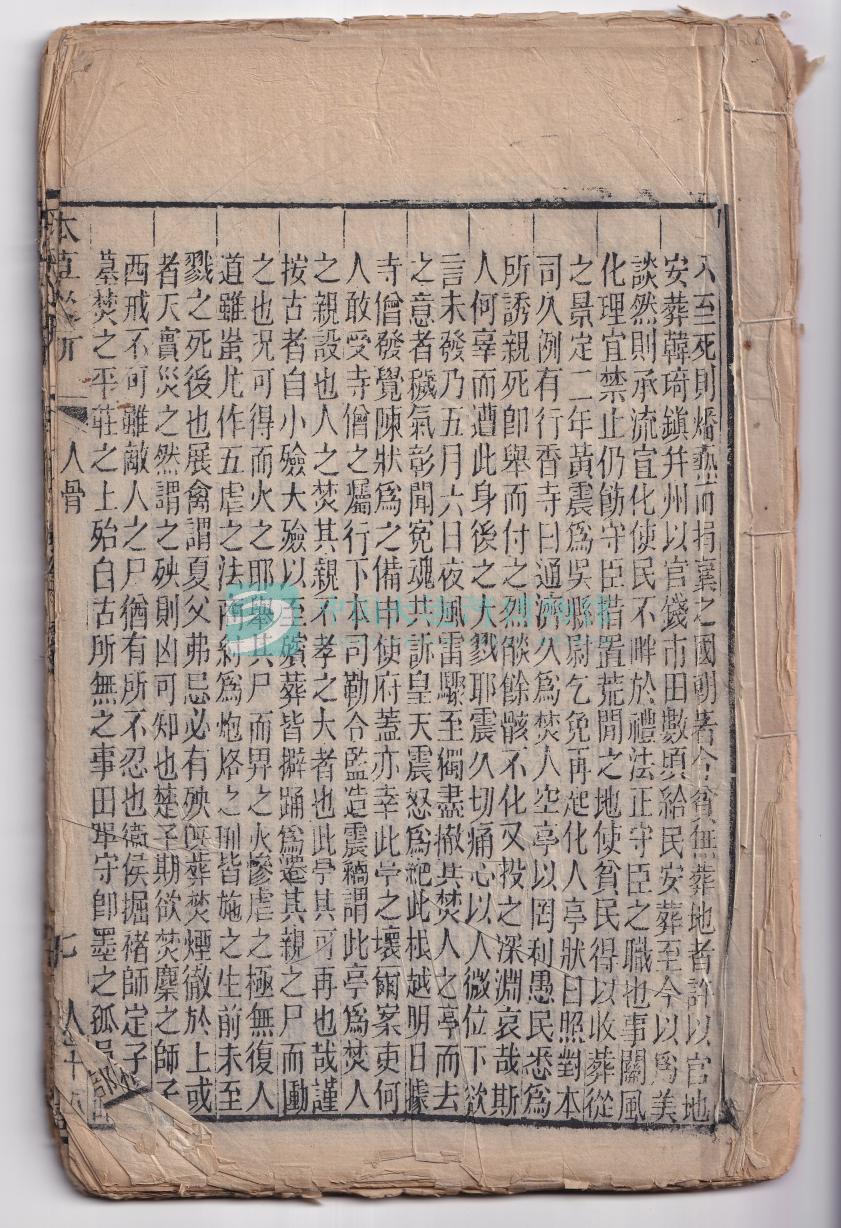 人至死則燔爇而捐棄之國朝著令貧無葬地者許以官地
安葬韓琦鎮幷州以官錢市田數頃給民安葬至今以爲美
談然則承流宣化使民不畔於禮法正守臣之職也事關風
化理宜禁止仍飭守臣措置荒閒之地使貧民得以收葬從
之景定二年黃震爲吳縣尉乞免再起化人亭狀曰照對本
司久例有行香寺曰通濟久爲焚人空亭以罔利愚民悉爲
所誘親死卽舉而付之烈燄餘骸不化又投之深淵哀哉斯
人何辜而遭此身後之大戮耶震久切痛心以人微位下欲
言未發乃五月六日夜風雷驟至獨盡撤其焚人之亭而去
之意者穢氣彰聞冤魂共訴皇天震怒爲絕此根越明日據
寺僧發覺陳狀爲之備申使府蓋亦幸此亭之壞爾案吏何
人敢受寺僧之屬行下本司勒令監造震竊謂此亭爲焚人
之親設也人之焚其親不孝之大者也此亭其可再也哉謹
按古者自小殮大殮以至殯葬皆擗踊爲遷其親之尸而動
之也况可得而火之耶舉其尸而畀之火慘虐之極無復人
道雖蚩尤作五虐之法商紂爲炮烙之刑皆施之生前未至
戮之死後也展禽謂夏父弗忌必有殃旣葬焚煙徹於上或
者天實災之然謂之殃則凶可知也楚子期欲焚麇之師子
西戒不可雖敵人之尸猶有所不忍也衞侯掘褚師定子
墓焚之平莊之上殆自古所無之事田單守卽墨之孤
人骨